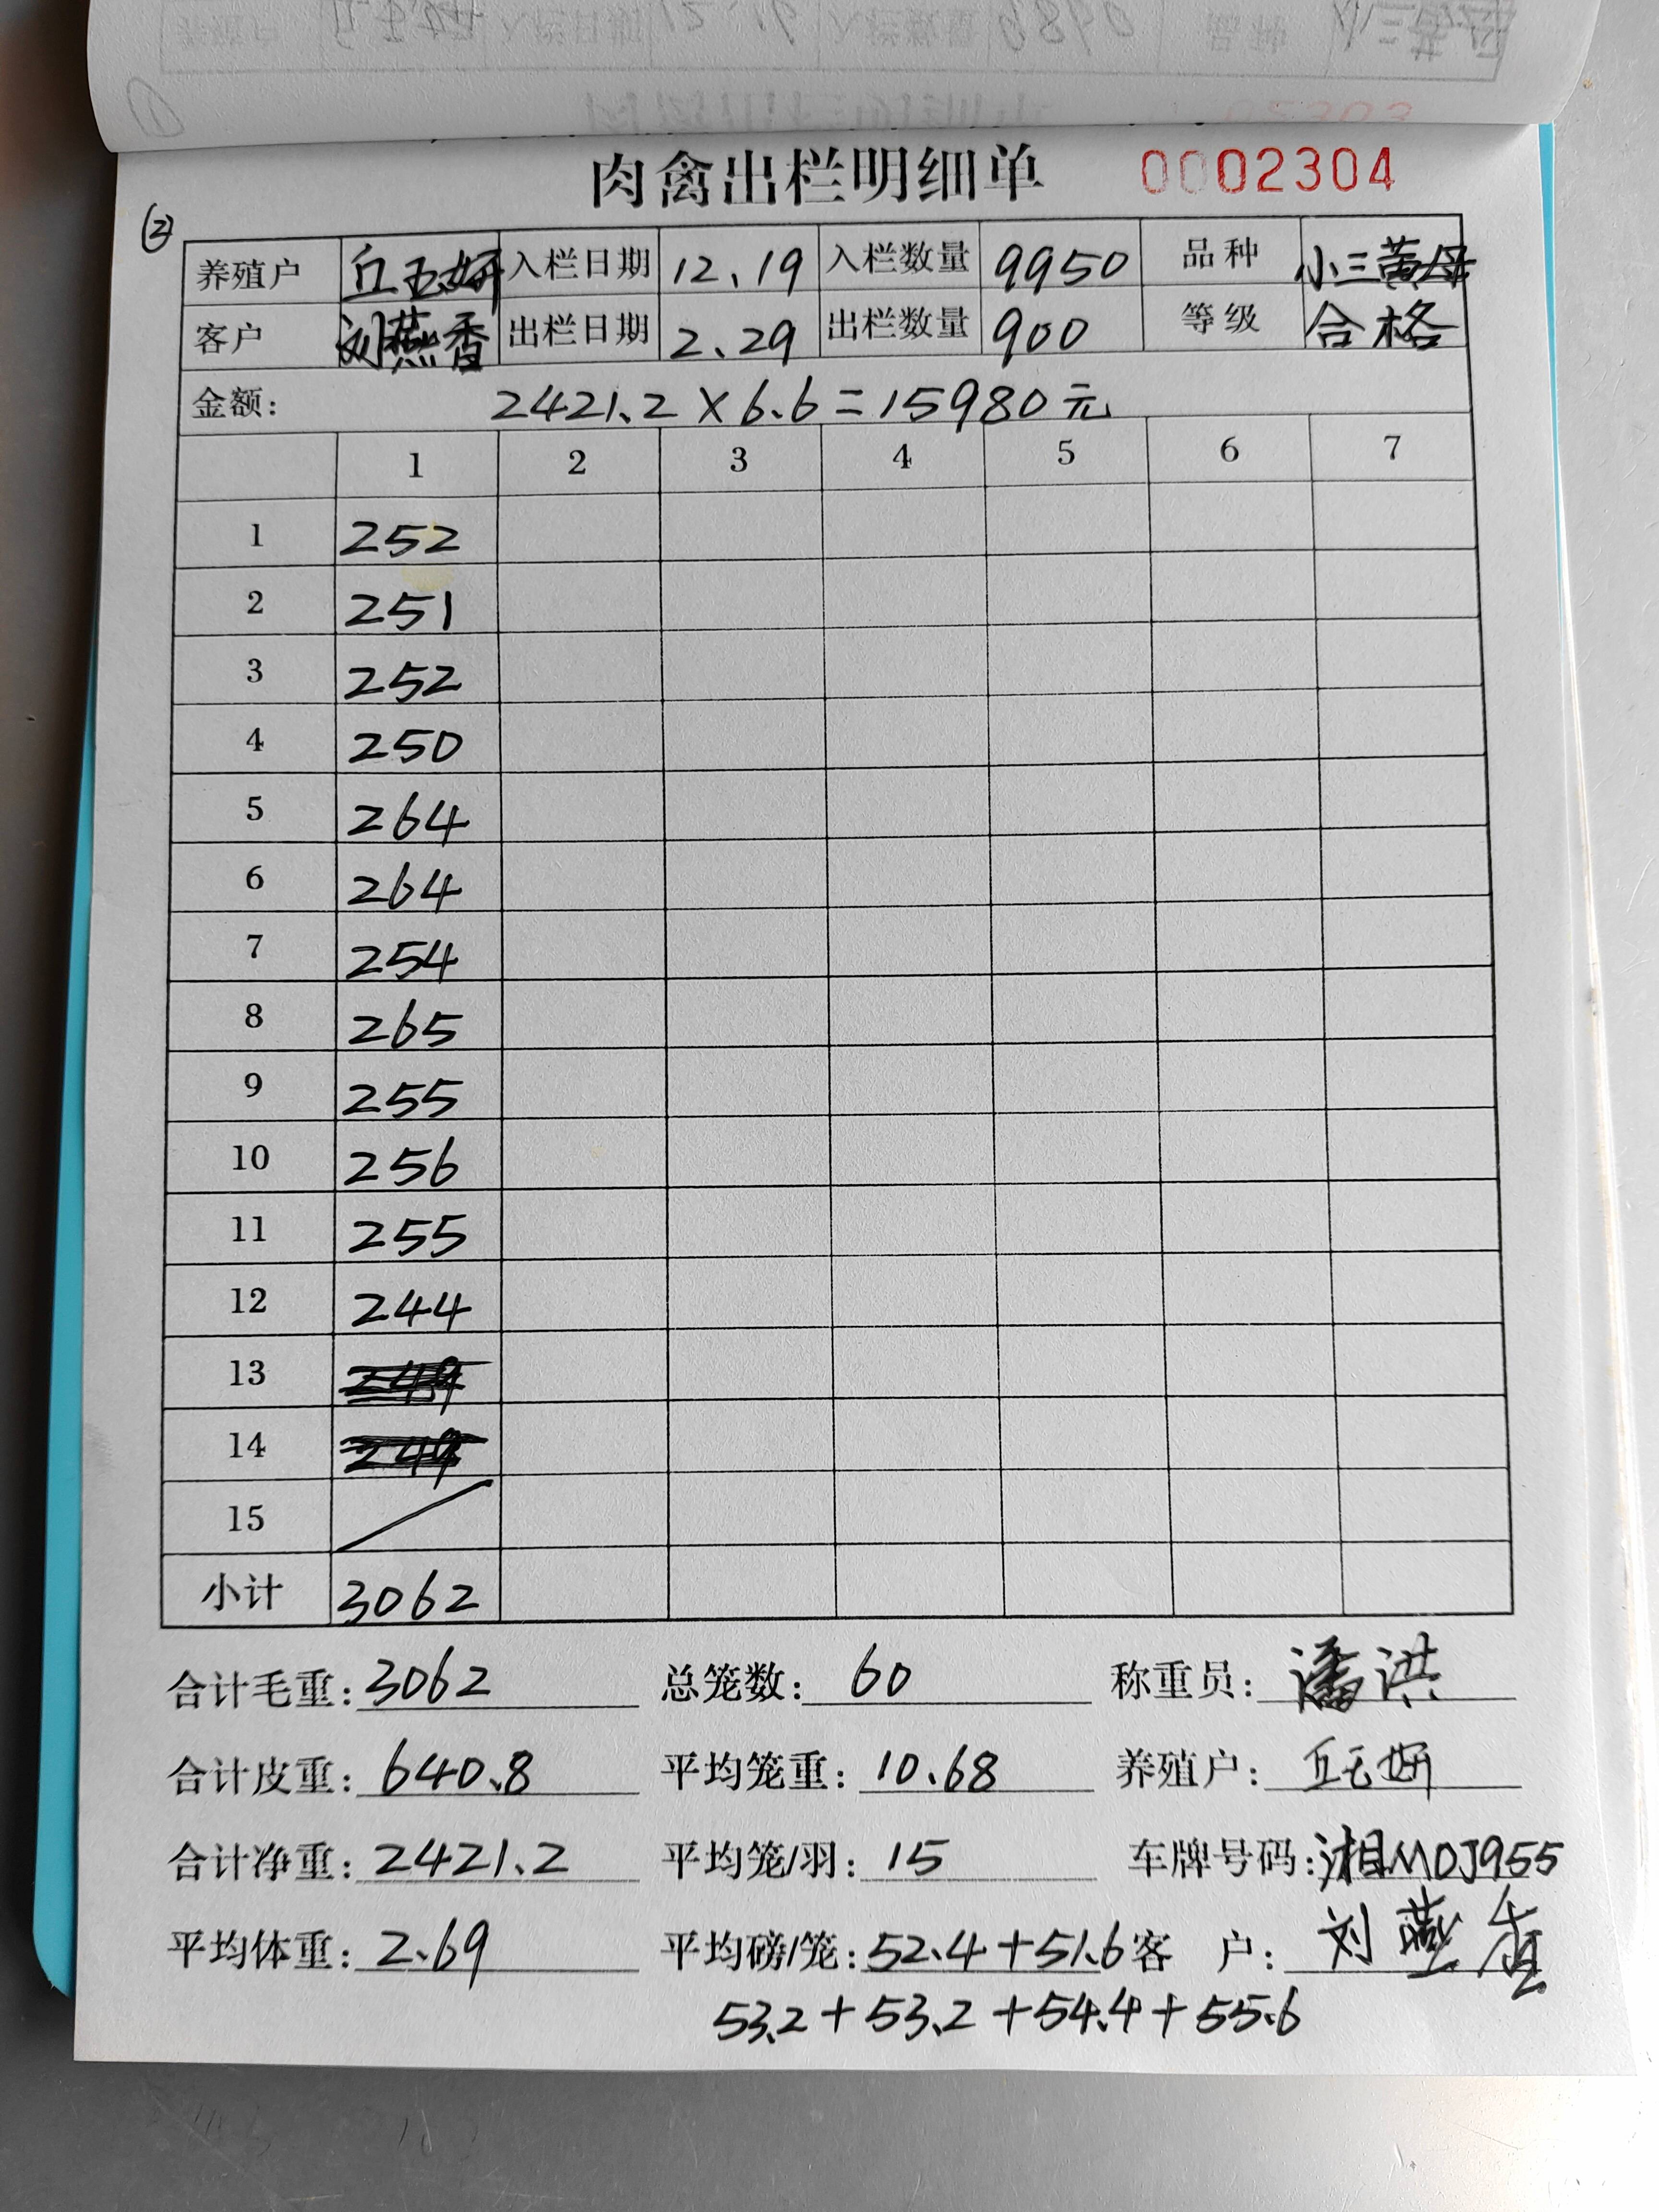 肉禽出栏明细单 0002304
②
养殖户 丘玉妍 入栏日期 12.19 入栏数量 9950 品种 小三黄母
客户 刘燕香 出栏日期 2.29 出栏数量 900 等级 合格
金额: 2421.2×6.6=15980元
1 2 3 4 5 6 7
1 252
2 251
3 252
4 250
5 264
6 264
7 254
8 265
9 255
10 256
11 255
12 244
13
14
15
小计 3062
合计毛重: 3062 总笼数: 60 称重员: 潘洪
合计皮重: 640.8 平均笼重: 10.68 养殖户: 丘玉妍
合计净重: 2421.2 平均笼/羽: 15 车牌号码: 湘M0J955
平均体重: 2.69 平均磅/笼: 52.4+51.6 客 户: 刘燕香
53.2+53.2+54.4+55.6